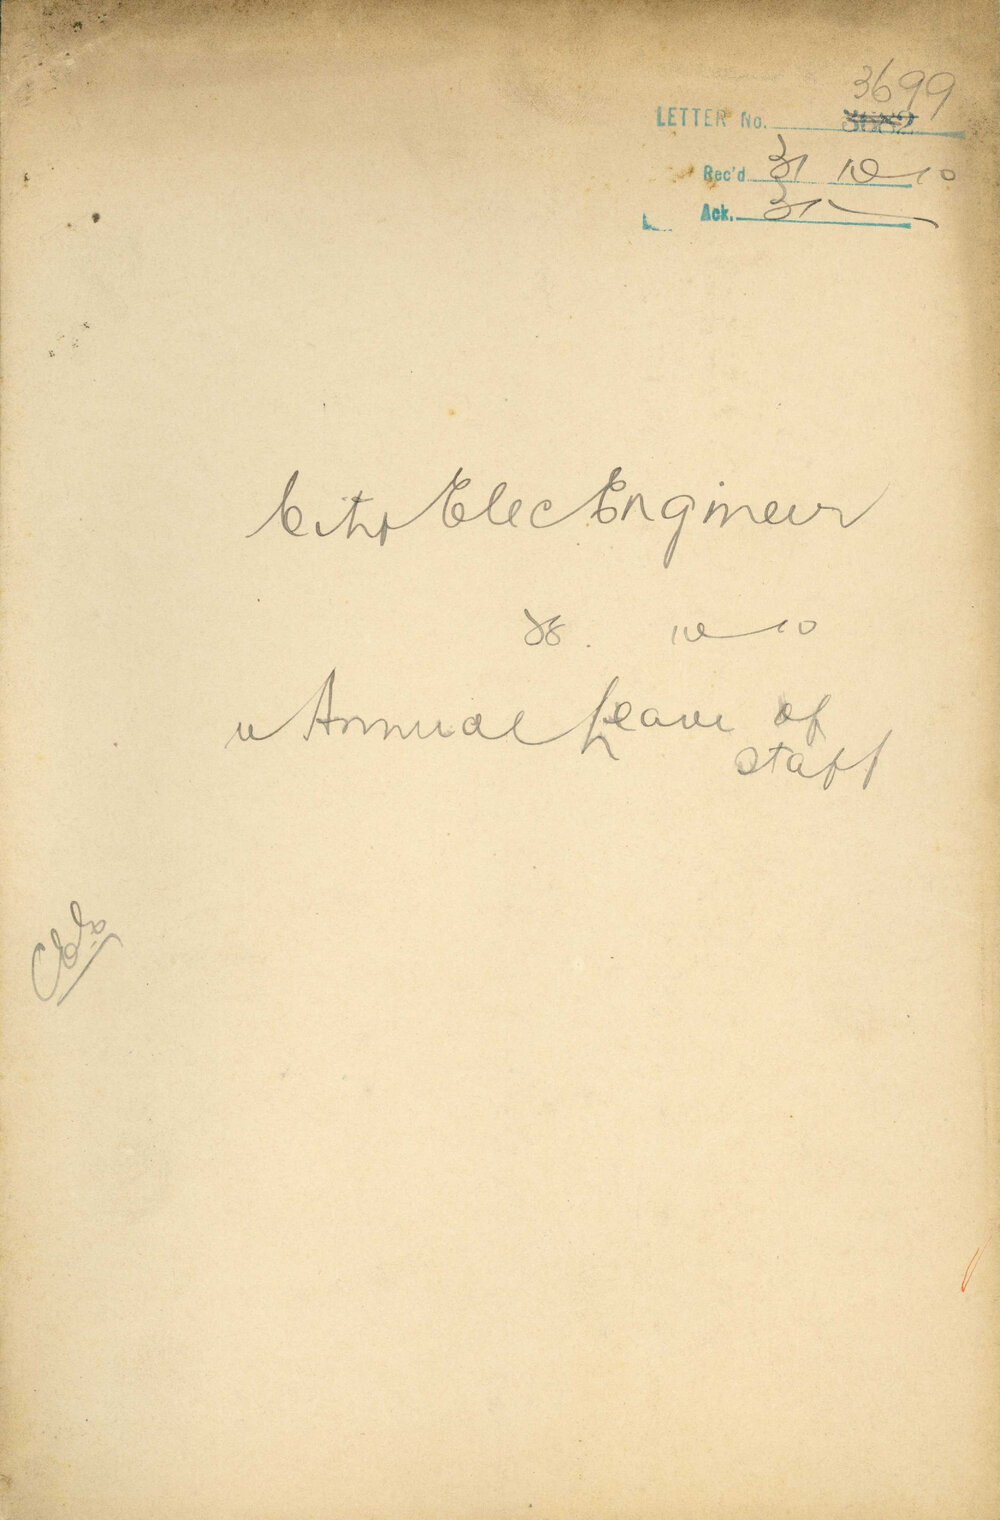 3699
LETTER No. 3682
Rec'd 31 10 10
Ack. 31
City Elec Engineer
28. 10 10
re Annual Leave of
staff